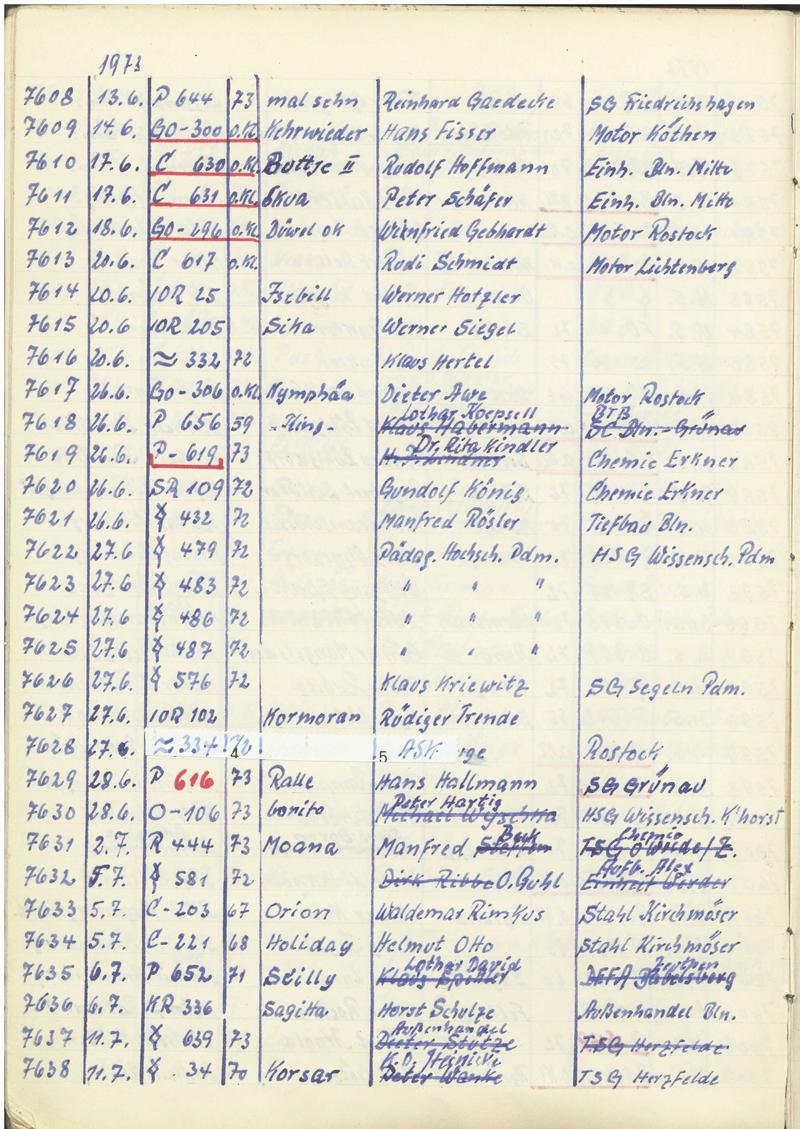 1973
7608 13.6. P 644 73 mal sehn Reinhard Gaedecke SG Friedrichshagen
7609 14.6. GO-300 o.Kl. Kehrwieder Hans Fisser Motor Köthen
7610 17.6. C 630 o.Kl. Buttje II Rudolf Hoffmann Einh. Bln. Mitte
7611 17.6. C 631 o.Kl. Skua Peter Schäfer Einh. Bln. Mitte
7612 18.6. GO-296 o.Kl. Düwel ok Winfried Gebhardt Motor Rostock
7613 20.6. C 617 o.Kl. Rudi Schmidt Motor Lichtenberg
7614 20.6. 10R 25 Isebill Werner Hotzler
7615 20.6 10R 205 Silka Werner Siegel
7616 20.6. ≈ 332 72 Klaus Hertel
7617 26.6. GO-306 o.Kl. Nymphäa Dieter Awe Motor Rostock
Lothar Koepsell BTB
7618 26.6. P 656 59 -King- Klaus Habermann SC Bln.-Grünau
Dr. Rita Kindler
7619 26.6. P-619 73 Chemie Erkner
7620 26.6. SR 109 72 Gundolf König. Chemie Erkner
7621 26.6. 432 72 Manfred Rösler Tiefbau Bln.
7622 27.6 479 72 Pädag. Hochsch. Pdm. HSG Wissensch. Pdm
7623 27.6 483 72 " " "
7624 27.6 486 72 " " "
7625 27.6 487 72 " " "
7626 27.6. 576 72 Klaus Kriewitz SG Segeln Pdm.
7627 27.6. 10R 102 Kormoran Rüdiger Trende
7628 27.6. ≈ 334 72 4 5 ASK rge Rostock
7629 28.6. P 616 73 Ralle Hans Hallmann SG Grünau
Peter Hartig
7630 28.6. O-106 73 bonito Michael HSG Wissensch. K'horst
Beck Chemie
7631 2.7. R 444 73 Moana Manfred Steffen TSG
Aufb. Alex
7632 5.7. 581 72 Dirk Ribbe O. Guhl Einheit Werder
7633 5.7. C-203 67 Orion Waldemar Rimkus Stahl Kirchmöser
7634 5.7. C-221 68 Holiday Helmut Otto Stahl Kirchmöser
Lothar David Zeuthen
7635 6.7. P 652 71 Scilly Klaus DEFA Babelsberg
7636 6.7. KR 336 Sagitta Horst Schulze Außenhandel Bln.
Außenhandel
7637 11.7. 639 73 Dieter TSG Herzfelde
K.D. Heinicke
7638 11.7. 34 70 Korsar Peter Wanke TSG Herzfelde